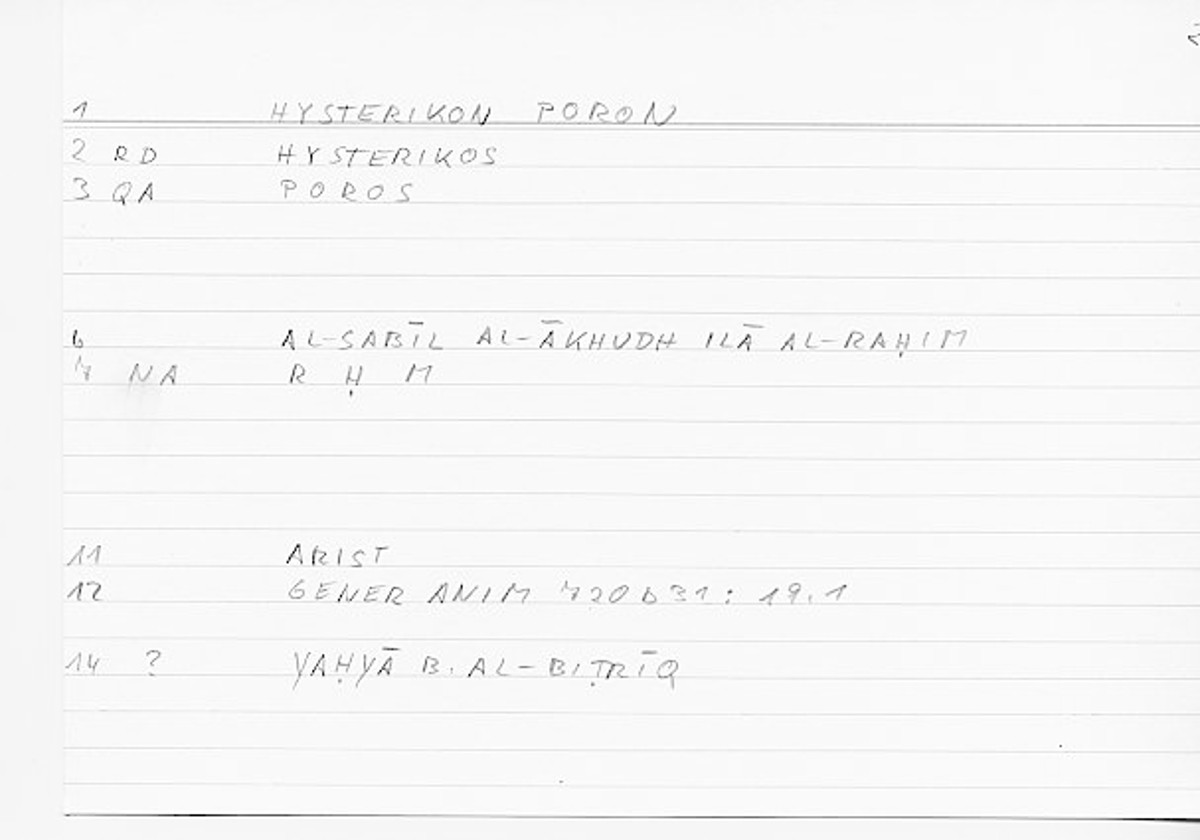 1 HYSTERIKON PORON
2 RD HYSTERIKOS
3 QA POROS
6 AL-SABĪL AL-ĀKHUDH ILĀ AL-RAḤIM
7 NA R Ḥ M
11 ARIST
12 GENER ANIM 720b31: 19.1
14 ? YAḤYĀ B. AL-BIṬRĪQ